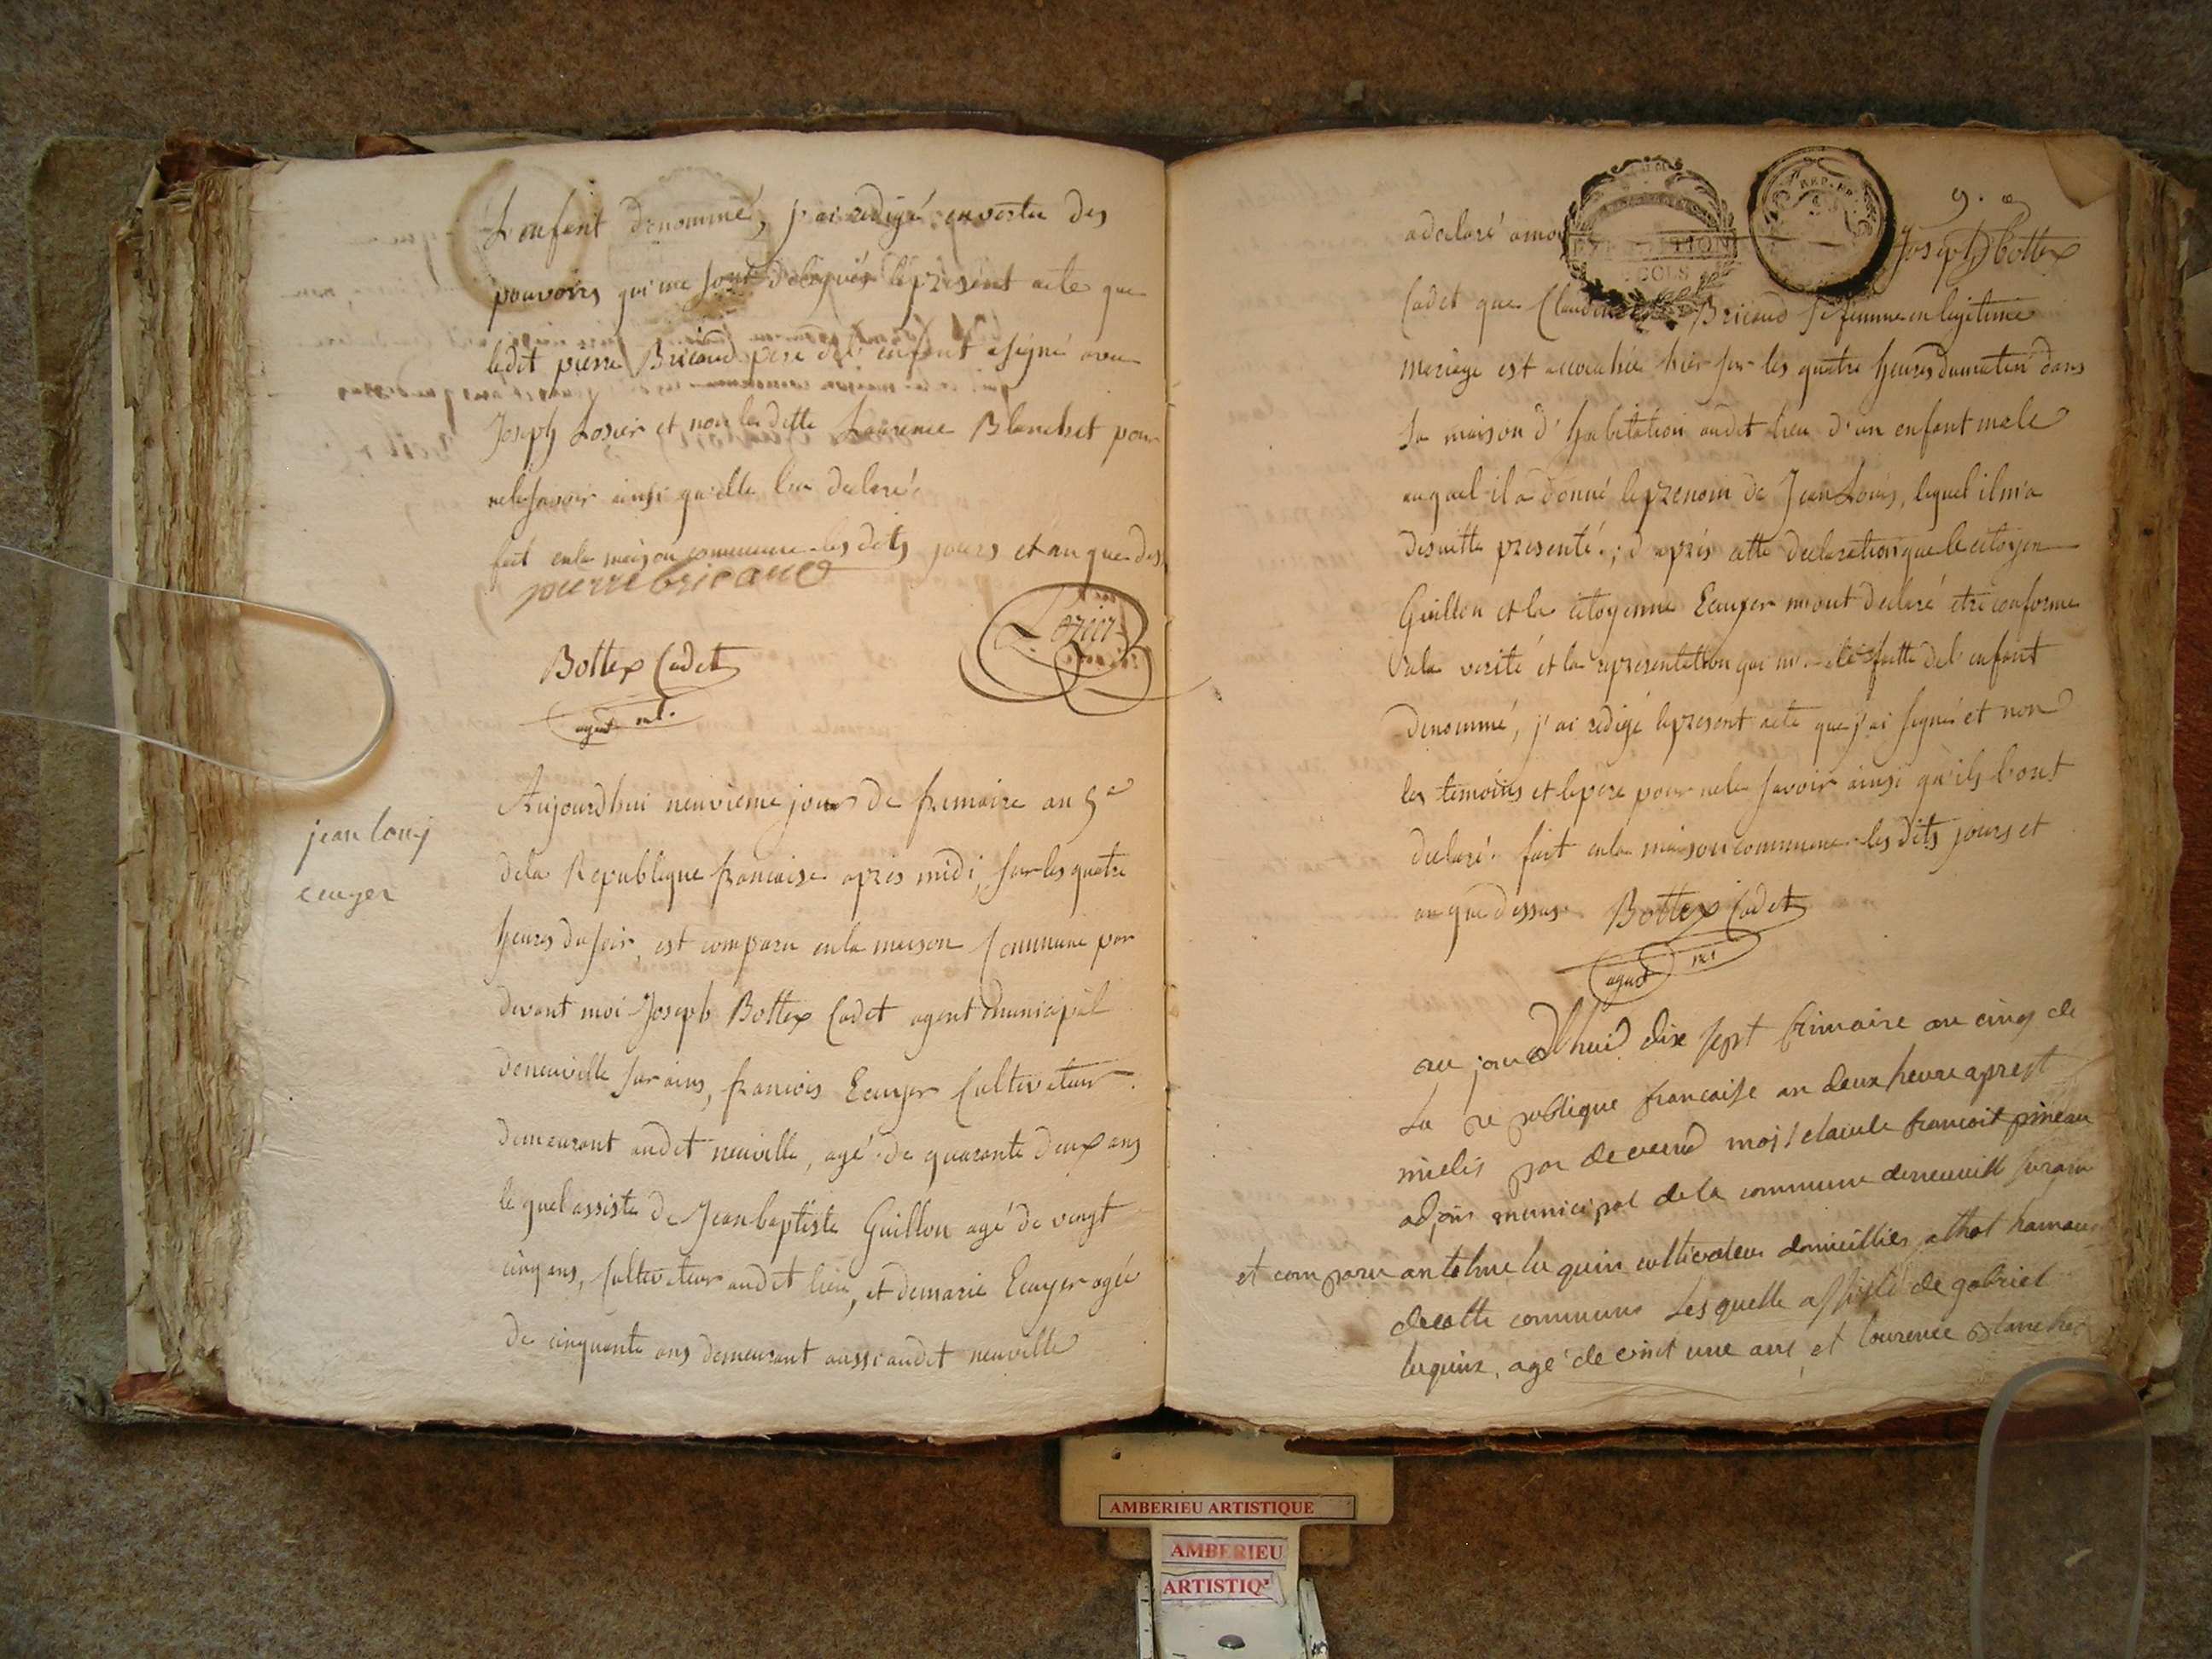 L'enfent denommé, j'ai redigé en vertu des
pouvoirs qui me sont delegués le present acte que
ledit pierre Bricaud pere de l'enfent a signé avec
Joseph Losier et non la ditte Laurence Blanchet pour
ne le savoir ainsi qu'elle l'a declaré.
fait en la maison commune les dits jours et an que des
pierre bricaud
Lozier
Bottex Cadet
agent m.l.
jean louis
ecuyer
Aujourdhui neuvieme jour de frimaire an 5e
de la Republique francaise apres midi, sur les quatre
heures du soir, est comparu en la meison Commune par
devant moi Joseph Bottex Cadet agent municipal
de neuville sur ains, francois Ecuyer Cultivateur
demeurant audit neuville, agé de quarante deux ans
le quel assisté de Jean baptiste Guillon agé de vingt
cinq ans, Cultivateur audit lieu, et de marie Ecuyer agée
de cinquante ans demeurant aussi audit neuville
9.
a declaré a moi Joseph bottex
EXPEDITION
COLS
REP. FR.
Cadet que Bricaud sa femme en legitime
mariage est accouchée hier sur les quatre heures du matin dans
sa maison d'habitation audit lieu d'un enfant male
auquel il a donné le prenom de Jean Louis, lequel il m'a
de suitte presenté; d'après cette declaration que le citoyen
Guillon et la citoyenne Ecuyer m'ont declaré etre conforme
a la verité et la representation qui m'a été faitte de l'enfant
denommé, j'ai redigé le present acte que j'ai signé et non
les temoins et le pere pour ne le savoir ainsi qu'ils l'ont
declaré. fait en la maison commune les dits jours et
an que dessus. Bottex Cadet
agent
au jourdhuid dix sept frimaire an cinq de
La re publique francaise an deux heure aprest
midis par devend moi claude francoit pineau
adjoin municipal de la commune deneuvill surain
et comparu antelme luquin cultivateur domicillies a thol hamau
de cette commune Lesquelle assisté de gabriel
luquin, agé de vint une ans, et lourence blanchet
AMBERIEU ARTISTIQUE
AMBERIEU
ARTISTIQ